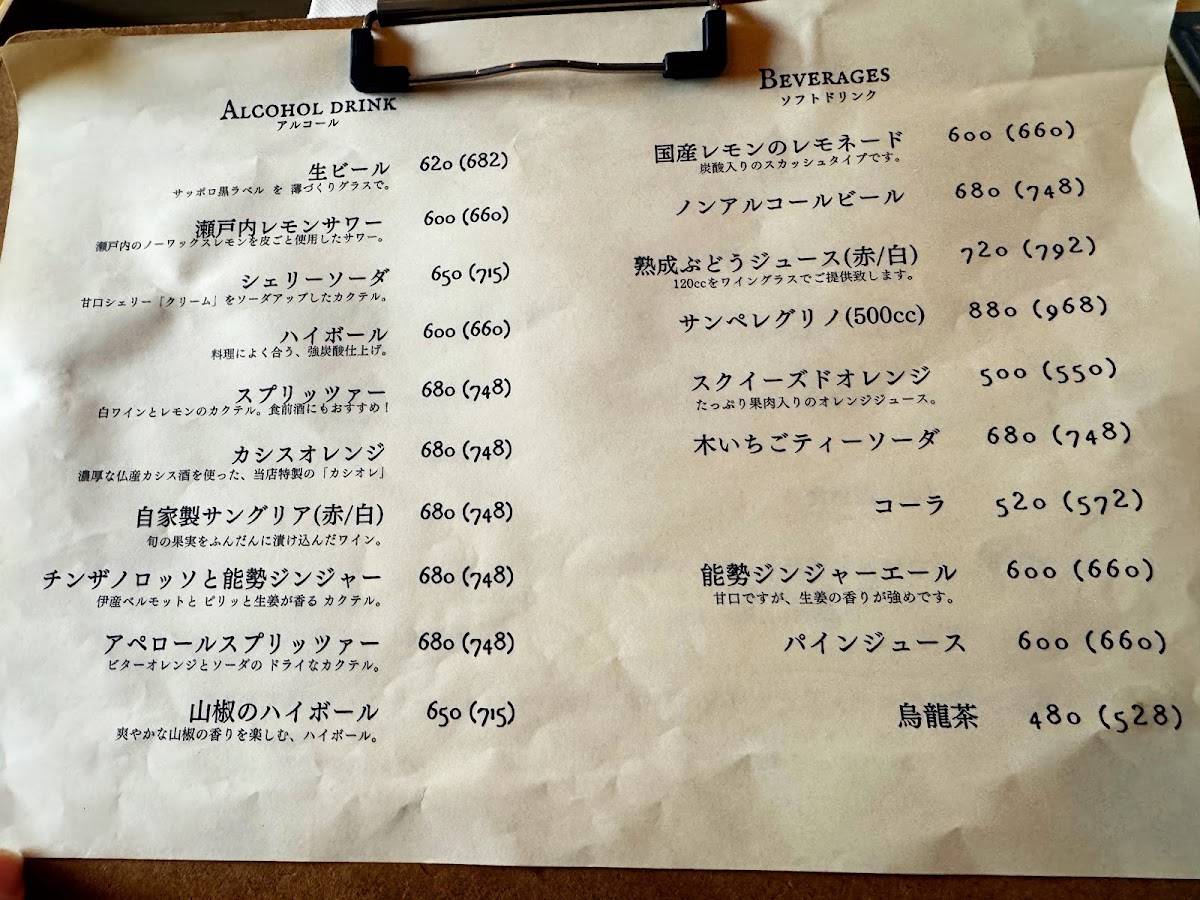 ALCOHOL DRINK
アルコール
生ビール 620 (682)
サッポロ黒ラベル を 薄づくりグラスで。
瀬戸内レモンサワー 600 (660)
瀬戸内のノーワックスレモンを皮ごと使用したサワー。
シェリーソーダ 650 (715)
甘口シェリー「クリーム」をソーダアップしたカクテル。
ハイボール 600 (660)
料理によく合う、強炭酸仕上げ。
スプリッツァー 680 (748)
白ワインとレモンのカクテル。食前酒にもおすすめ！
カシスオレンジ 680 (748)
濃厚な仏産カシス酒を使った、当店特製の「カシオレ」
自家製サングリア(赤/白) 680 (748)
旬の果実をふんだんに漬け込んだワイン。
チンザノロッソと能勢ジンジャー 680 (748)
伊産ベルモットと ピリッと生姜が香る カクテル。
アペロールスプリッツァー 680 (748)
ビターオレンジとソーダの ドライなカクテル。
山椒のハイボール 650 (715)
爽やかな山椒の香りを楽しむ、ハイボール。
BEVERAGES
ソフトドリンク
国産レモンのレモネード 600 (660)
炭酸入りのスカッシュタイプです。
ノンアルコールビール 680 (748)
熟成ぶどうジュース(赤/白) 720 (792)
120ccをワイングラスでご提供致します。
サンペレグリノ(500cc) 880 (968)
スクイーズドオレンジ 500 (550)
たっぷり果肉入りのオレンジジュース。
木いちごティーソーダ 680 (748)
コーラ 520 (572)
能勢ジンジャーエール 600 (660)
甘口ですが、生姜の香りが強めです。
パインジュース 600 (660)
烏龍茶 480 (528)